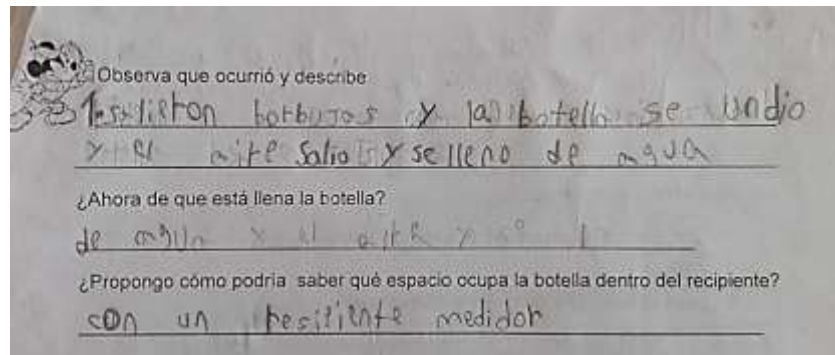 Observa que ocurrió y describe
salieron borbujas y la botella se undio
y el aire salio y se lleno de agua
¿Ahora de que está llena la botella?
de agua y el aire y
¿Propongo cómo podría saber qué espacio ocupa la botella dentro del recipiente?
con un resipiente medidor